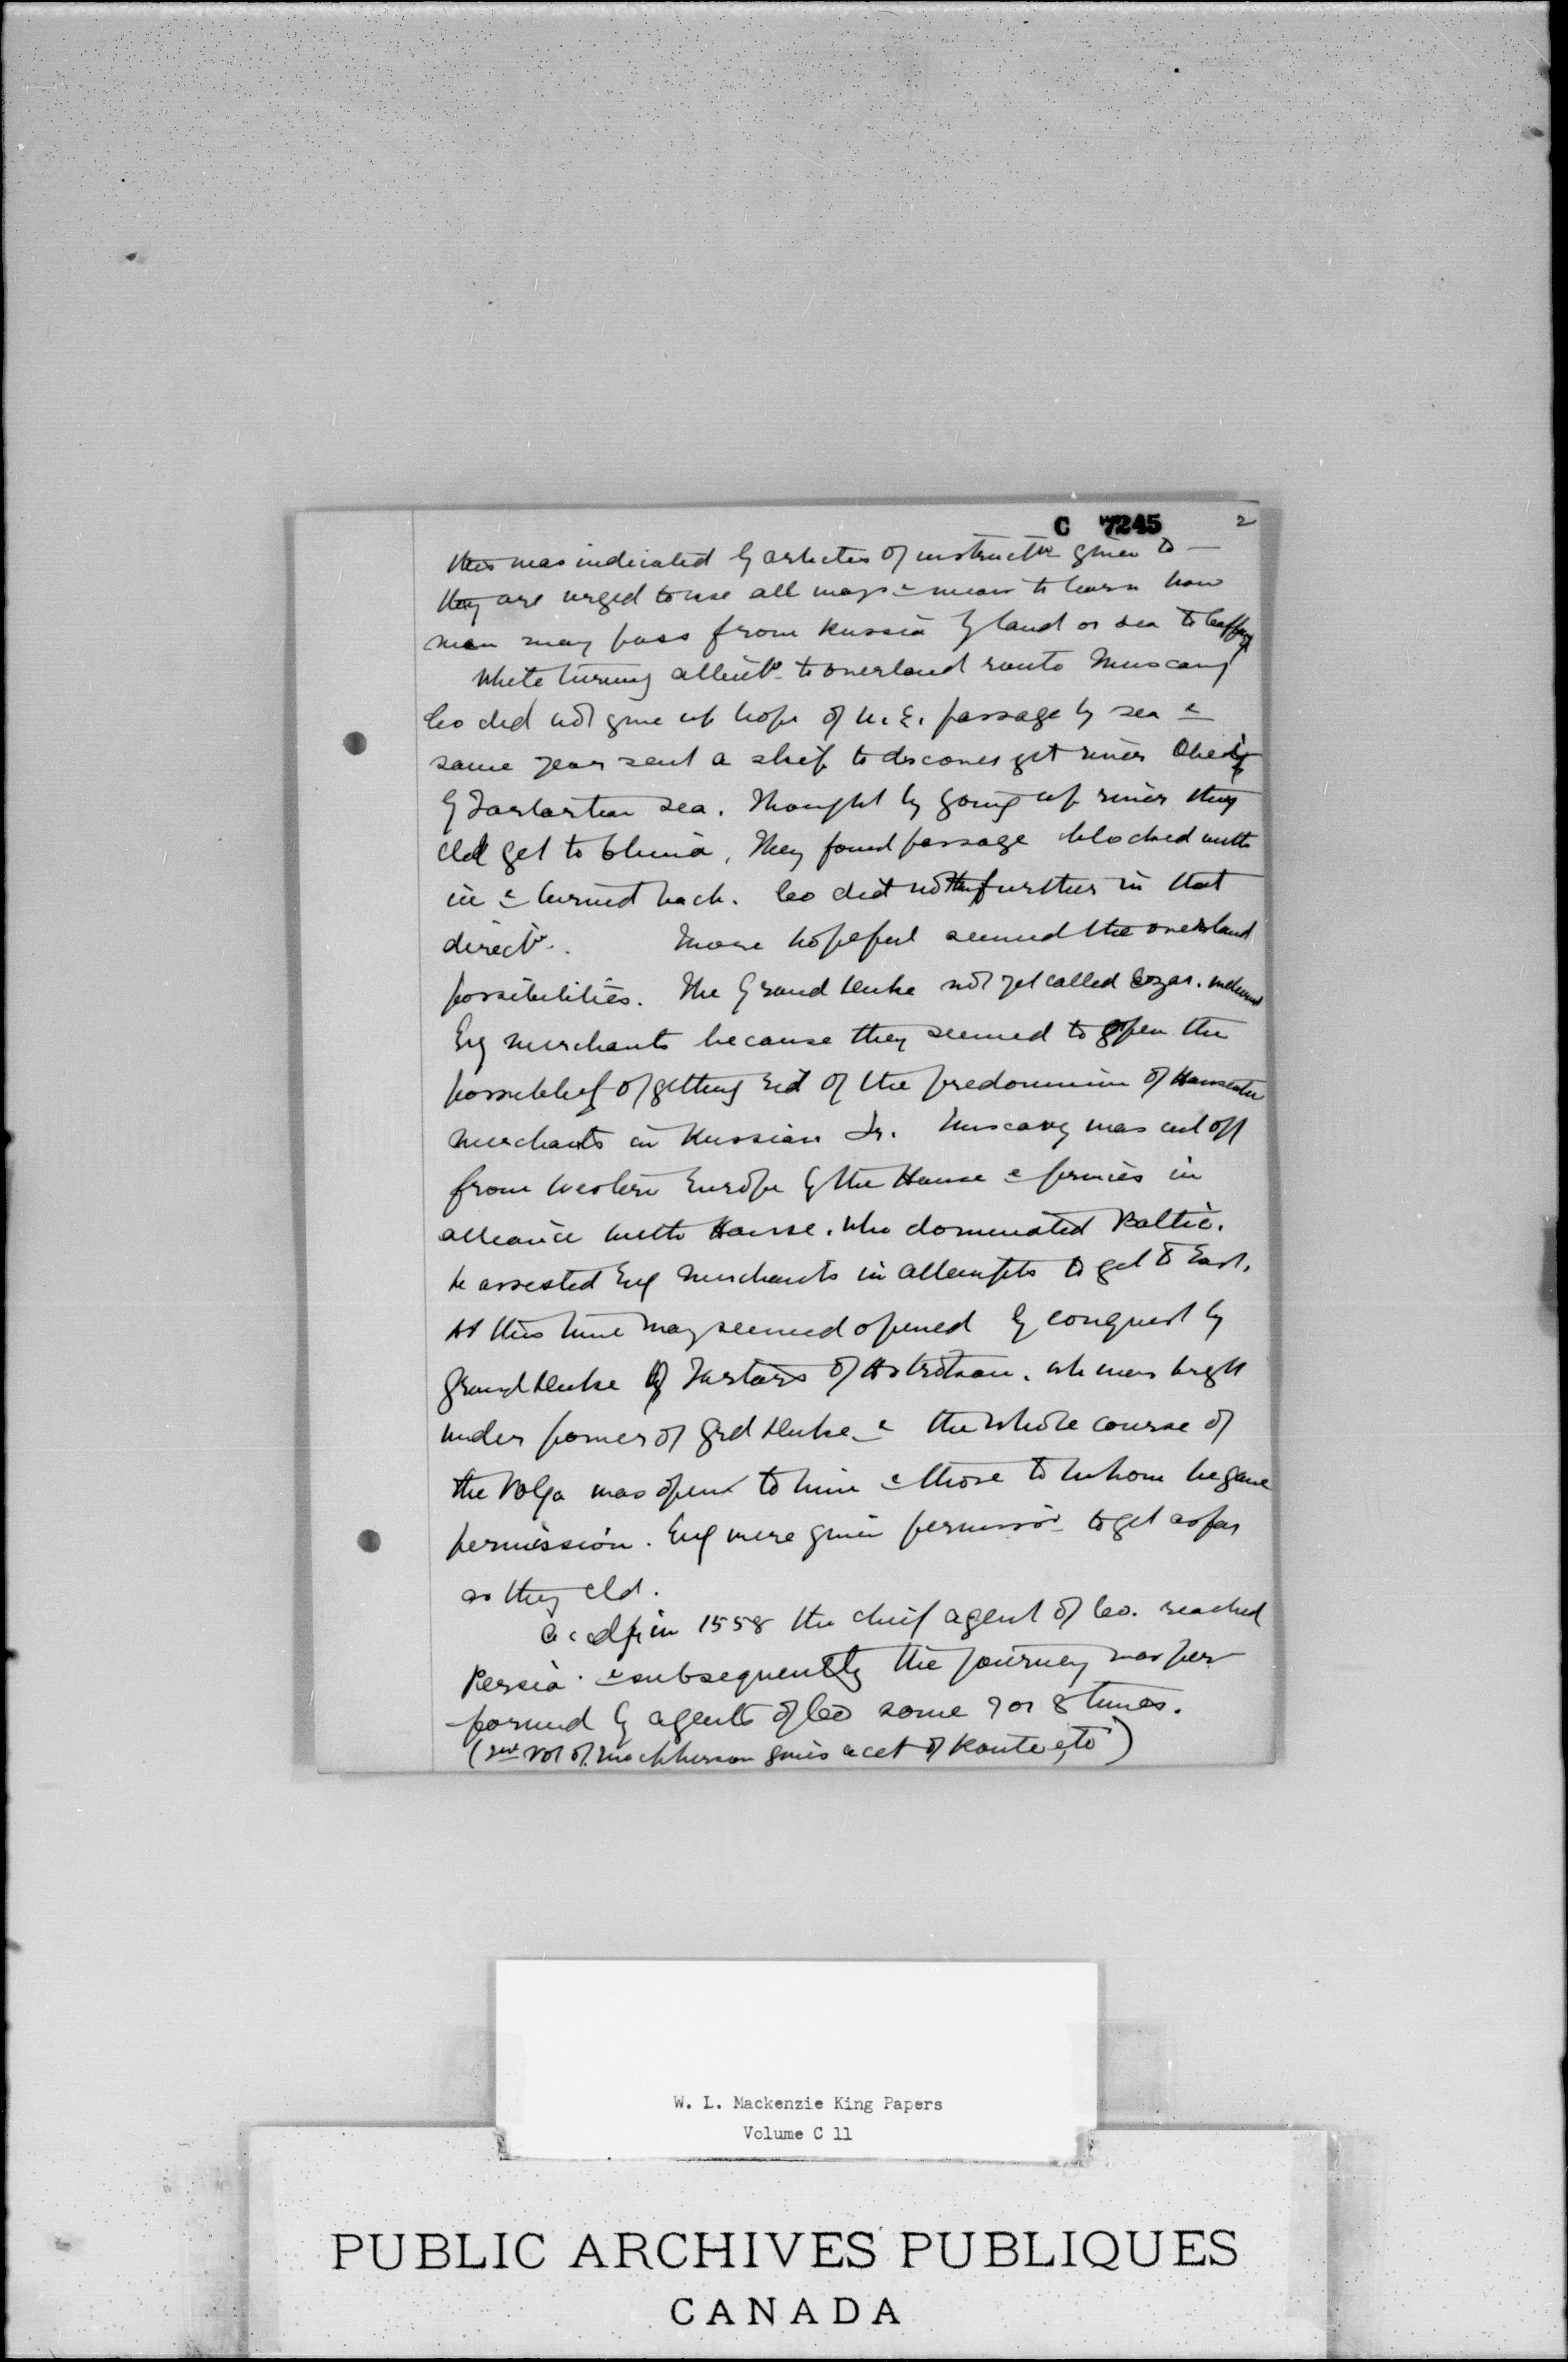 C 7245
2
this was indicated by articles of instructn given to —
they are urged to use all ways & means to learn how
men may pass from Russia by land or sea to Cathay
While turning attentn to overland route Muscovy
Co did not give up hope of N.E. passage by sea &
same year sent a ship to discover gt river
by Tartarian sea. Thought by going up river they
cld get to China, They found passage blocked with
ice & turned back. Co did not further in that
directn. More hopeful seemed the overland
possibilities. The Grand Duke not yet called Czar. welcomed
Eng merchants because they seemed to open the
possibility of getting rid of the predominion of Hanseatic
merchants in Russian Tr. Muscovy was cut off
from Western Europe by the Hanse & ferries in
alliance with Hanse. who dominated Baltic.
He assisted Eng merchants in attempts to get to East.
At this time way seemed opened by conquest by
Grand Duke of Tartars of Astrakan. wh was bright
under power of Grd Duke & the whole course of
the Volga was open to him & those to whom he gave
permission. Eng were given permissn to get as far
as they cld.
in 1558 the chief agent of Co. reached
Persia & subsequently the journey was per-
formed by agents of Co some 7 or 8 times.
(2nd Vol of Macpherson gives acct of Route etc)
W. L. Mackenzie King Papers
Volume C 11
PUBLIC ARCHIVES PUBLIQUES
CANADA